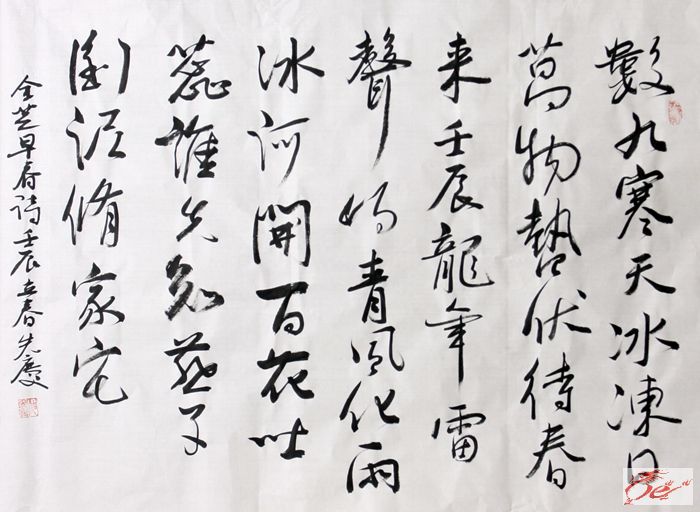 數九寒天冰凍日
萬物蟄伏待春
来壬辰龍年雷
聲鸣青風化雨
冰河開百花吐
蕊誰先知燕子
銜泥脩家宅
全芝早春诗壬辰立春先慶